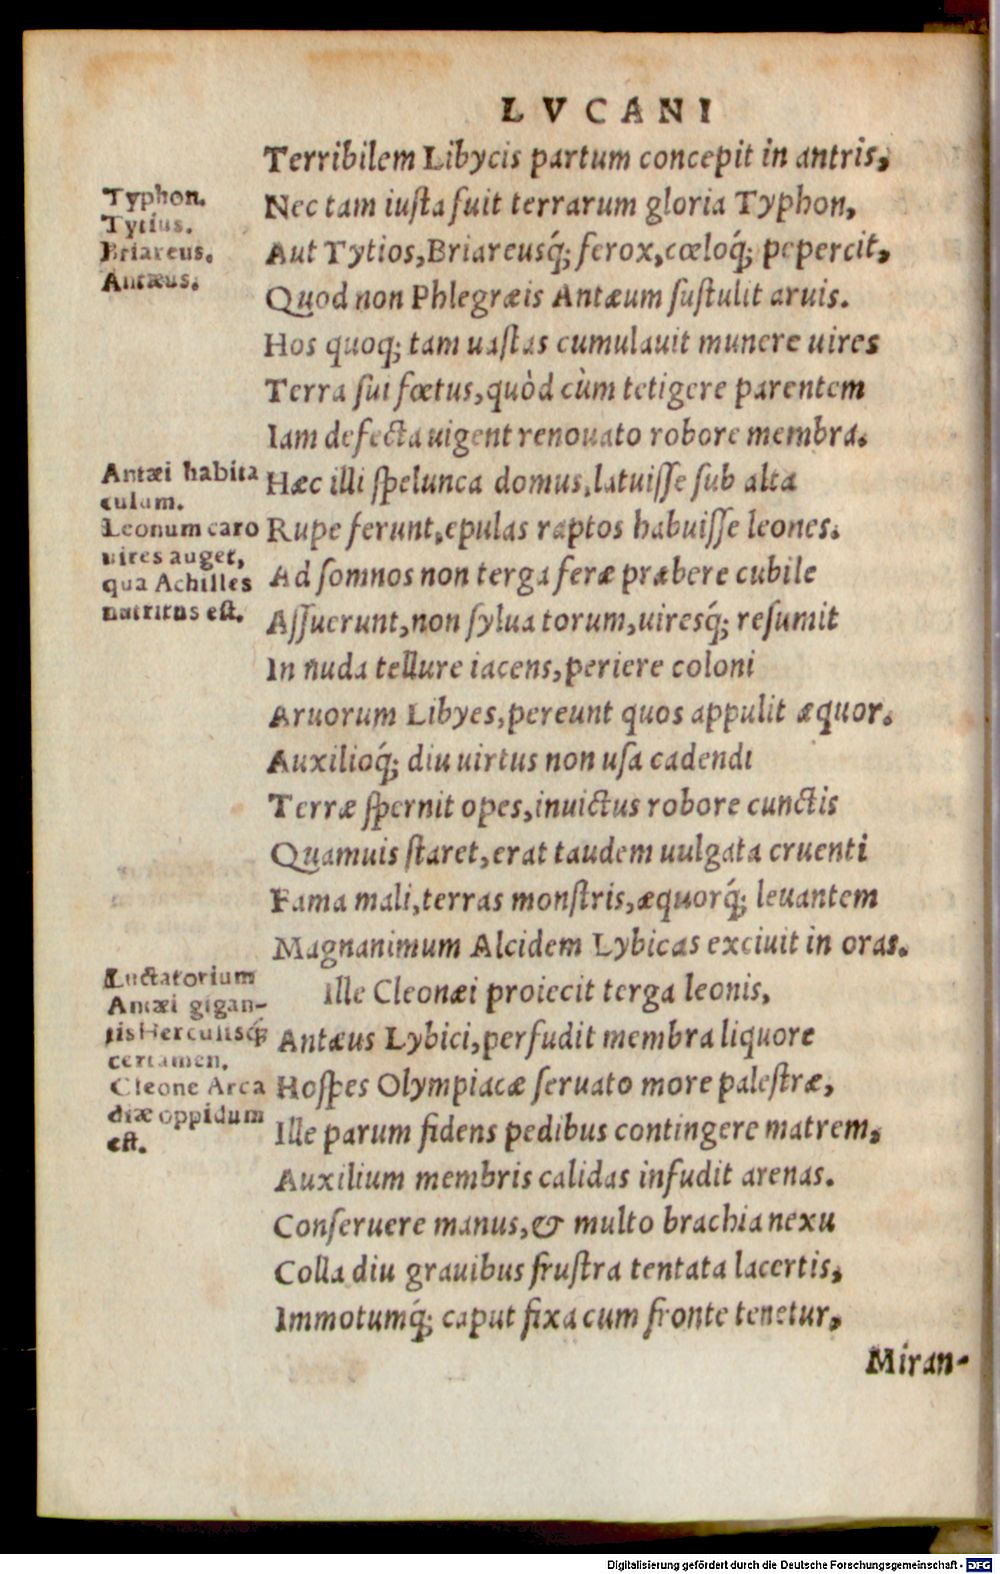 LVCANI
Terribilem Libycis partum concepit in antris,
Typhon.
Tytius.
Briareus.
Antæus.
Nec tam iusta fuit terrarum gloria Typhon,
Aut Tytios, Briareusq́; ferox, cœloq́; pepercit,
Quod non Phlegræis Antæum sustulit aruis.
Hos quoq; tam uastas cumulauit munere uires
Terra sui fœtus, quòd cùm tetigere parentem
Iam defecta uigent renouato robore membra.
Antæi habita
culum.
Leonum caro
uires auget,
qua Achilles
nutritus est.
Hæc illi spelunca domus, latuisse sub alta
Rupe ferunt, epulas raptos habuisse leones.
Ad somnos non terga feræ præbere cubile
Assuerunt, non sylua torum, uiresq́; resumit
In nuda tellure iacens, periere coloni
Aruorum Libyes, pereunt quos appulit æquor.
Auxilioq́; diu uirtus non usa cadendi
Terræ spernit opes, inuictus robore cunctis
Quamuis staret, erat taudem uulgata cruenti
Fama mali, terras monstris, æquorq́; leuantem
Magnanimum Alcidem Lybicas exciuit in oras.
Luctatorium
Antæi gigan-
tis Herculisq́;
certamen.
Cleone Arca
diæ oppidum
est.
Ille Cleonæi proiecit terga leonis,
Antæus Lybici, perfudit membra liquore
Hospes Olympiacæ seruato more palestræ,
Ille parum fidens pedibus contingere matrem,
Auxilium membris calidas infudit arenas.
Conseruere manus, & multo brachia nexu
Colla diu grauibus frustra tentata lacertis,
Immotumq́; caput fixa cum fronte tenetur,
Miran-
Digitalisierung gefördert durch die Deutsche Forschungsgemeinschaft - DFG